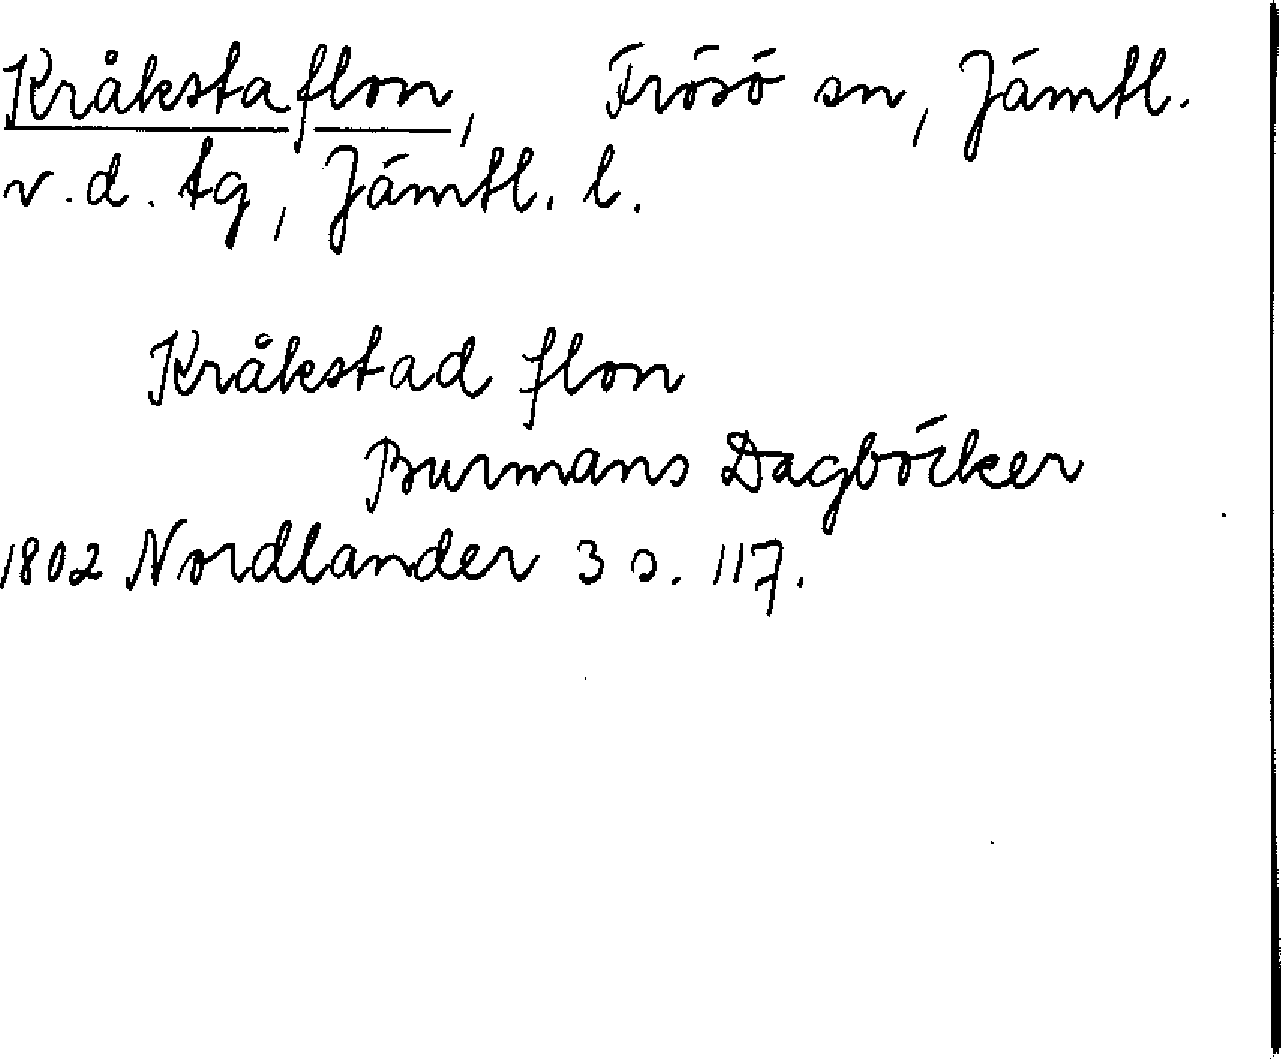 Kråkstaflon, Frösö sn, Jämtl.
v.d. tg, Jämtl. l.
Kråkstad flon
Burmans Dagböcker
1802 Nordlander 3 s. 117.